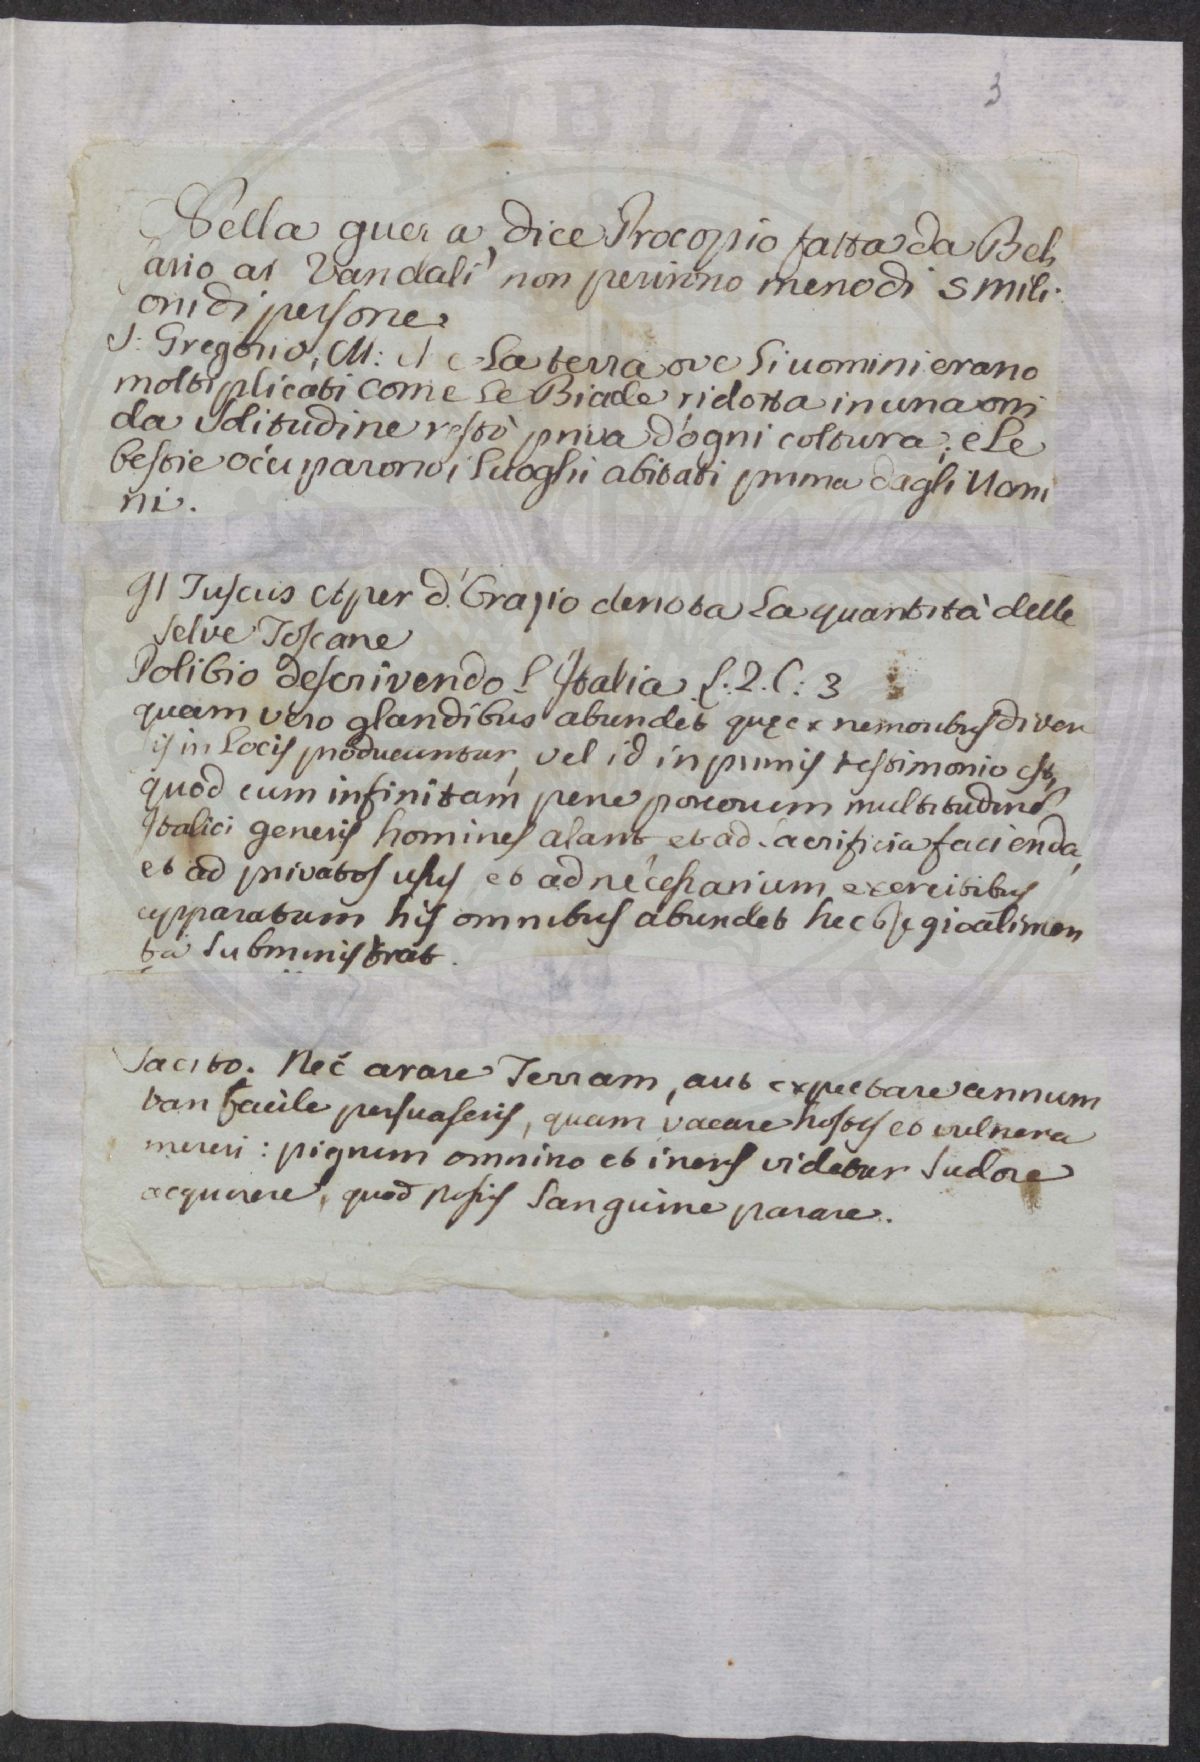 3
Nella guerra, dice Procopio fatta da Beli
sario ai Vandali non perirono meno di 5 mili
oni di persone
S: Gregorio, M: La terra ove li uomini erano
moltiplicati come le Biade, ridotta in una orri
da solitudine restò priva d'ogni coltura, e le
bestie occuparono i luoghi abitati prima dagli Uomi
ni.
Gl Tuscus denota la quantità delle
selve Toscane
Polibio descrivendo l'Italia L. 2. C: 3
quam vero glandibus abundet quę ex nemoribus diver
sis in Locis producuntur, vel id in primis testimonio est,
quod cum infinitam pene porcorum multitudinē
Italici generis homines alant et ad sacrificia facienda,
et ad privatos usus et ad necessarium exercitibus
apparatum his omnibus abundet hec regio alimen
ta subministrat.
Tacito. Nec arare Terram, aut expectare annum
tan facile persuaseris, quam vocare hostes et vulnera
mereri: pigrum omnino et iners videtur sudore
acquirere, quod possis sanguine parare.